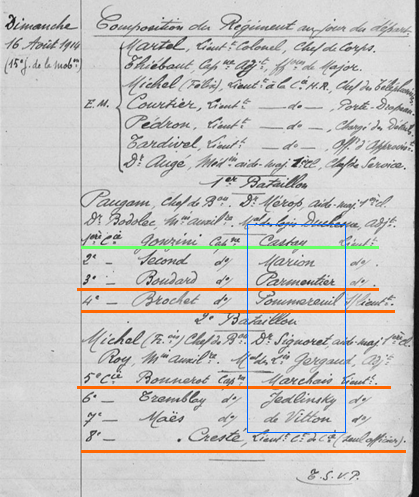 Dimanche
16 Août 1914
(15e j. de la mobon)
Composition du Régiment au jour du départ.
Martel, Lieutt Colonel, Chef de Corps.
Thiébaut, Capne Adjt, ffons de Major.
Michel (Félix), Lieutt à la Cie H.R., Chef du Téléphone
E.M. Courtier, Lieutt — do — Porte-Drapeau
Pédron, Lieutt — do — Chargé du Détail
Tardivel, Lieutt — do — Off. d'Approvis.
Dr Augé, Médin aide-maj 1e cl, Chef du Service.
1er Bataillon
Paugam, Chef de Bon. Dr Mérop, aide-maj 1re cl.
Dr Bodolec, Min auxilre. Mal des logis Duchesne, Adjt.
1ère Cie Gonzim Capne Castay Lieutt
2e — Second do Marion do
3e — Boudard do Parmentier do
4e — Brochet do Pommereuil s/lieutt
2e Bataillon
Michel (Fr.) Chef de Bon. Dr Signoret aide-maj 1re cl.
Roy, Min auxilre. Mal des Lis Gergaud, Adjt.
5e Cie Bonnerot Capne Marchais Lieutt.
6e — Tremblay do Jedlinsky do
7e — Maës do de Vitton do
8e — Cresté, Lieutt Ct la Cie (seul officier).
T.S.V.P.